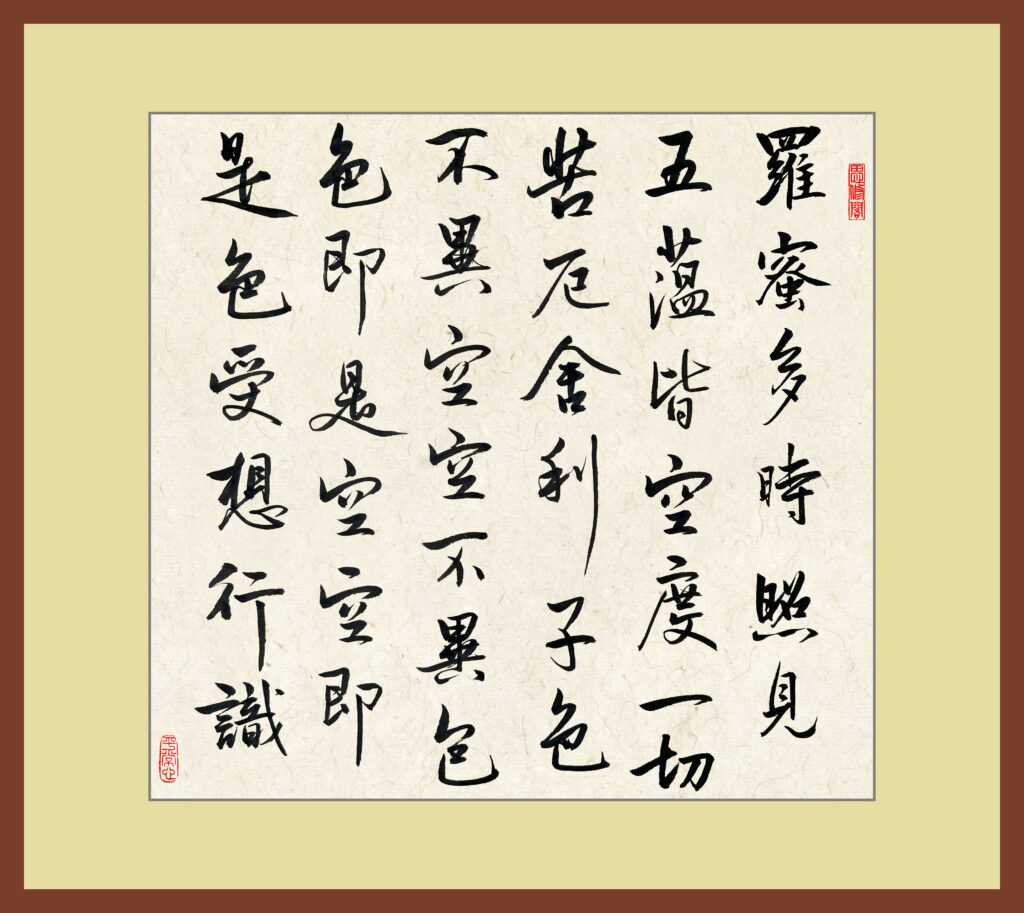 羅蜜多時照見
五蘊皆空度一切
苦厄舍利子色
不異空空不異色
色即是空空即
是色受想行識
平常心